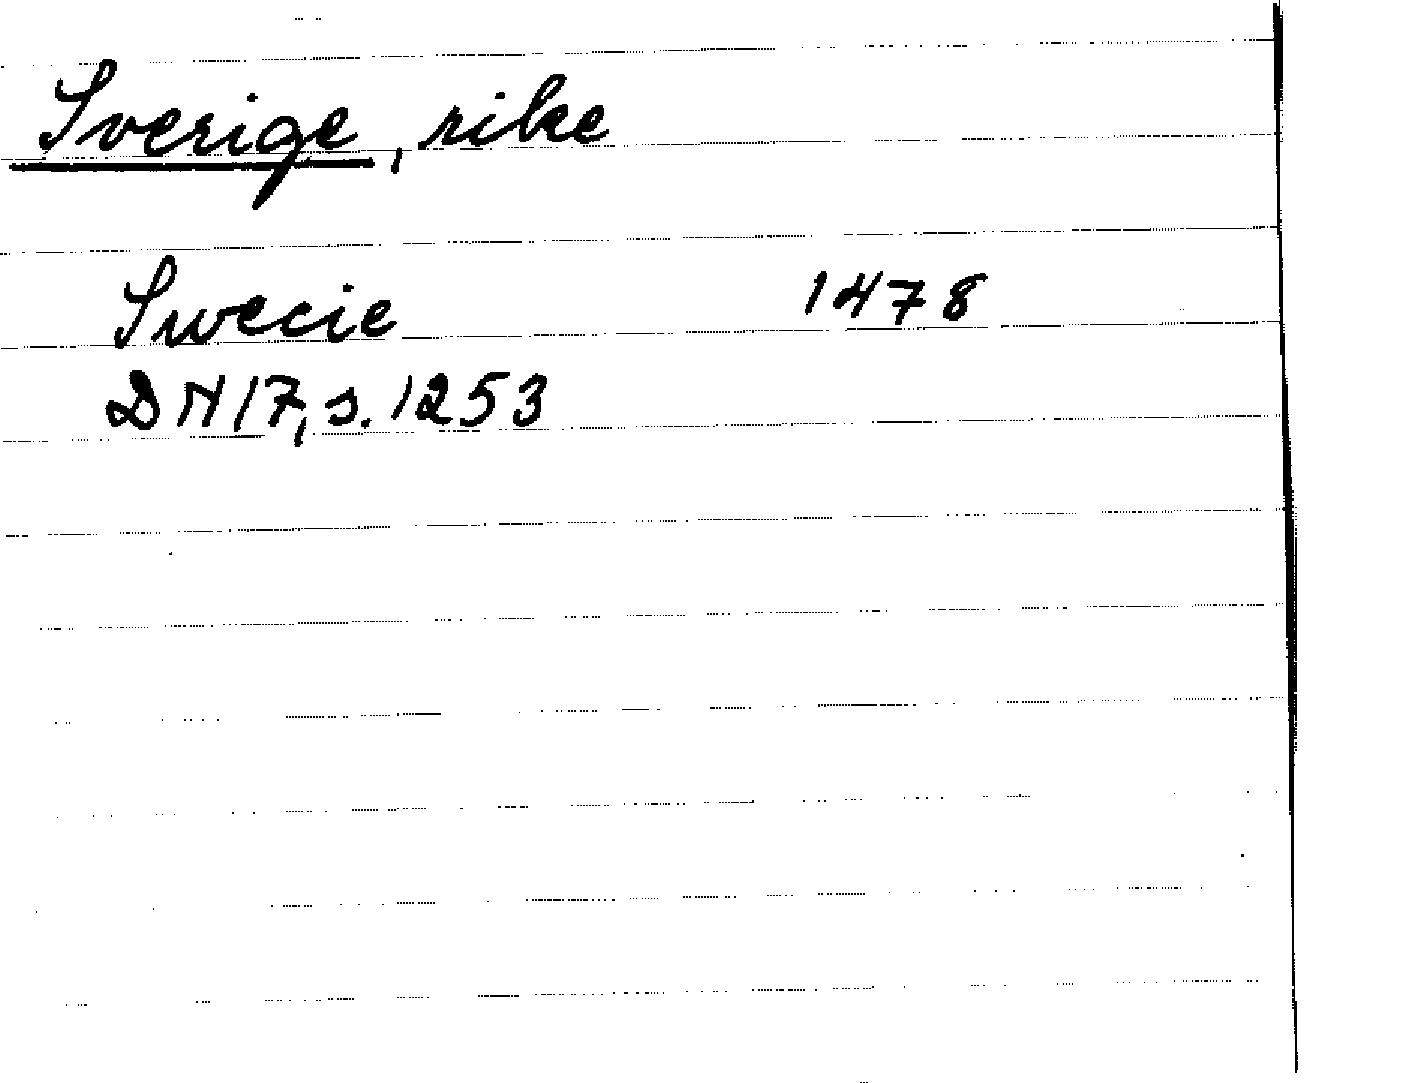 Sverige, rike
Swecie 1478
DN 17, s. 1253